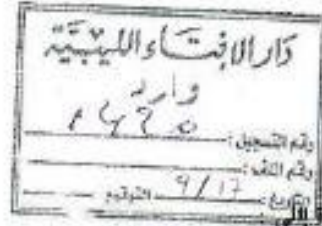 دار الإفتاء الليبية
وارد
رقم التسجيل :
رقم الملف :
التاريخ : 9/17 التوقيع